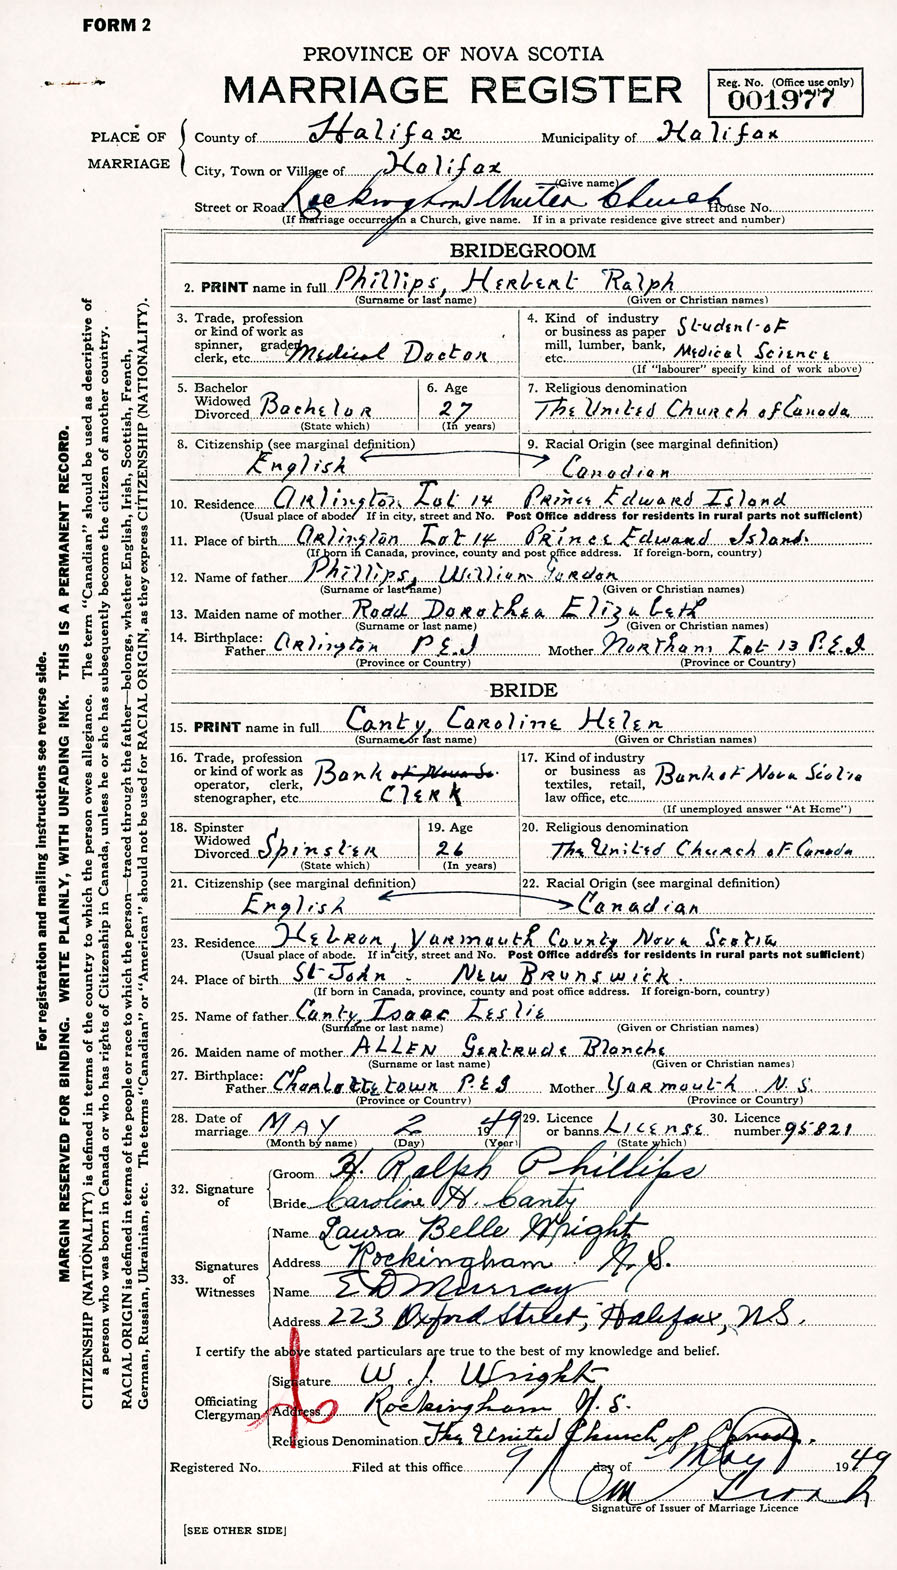 FORM 2
PROVINCE OF NOVA SCOTIA
MARRIAGE REGISTER
Reg. No. (Office use only)
001977
PLACE OF MARRIAGE
County of Halifax Municipality of Halifax
City, Town or Village of Halifax
(Give name)
Street or Road Rockingham United Church House No.
(If marriage occurred in a Church, give name. If in a private residence give street and number)
BRIDEGROOM
2. PRINT name in full Phillips, Herbert Ralph
(Surname or last name) (Given or Christian names)
3. Trade, profession or kind of work as spinner, grader, clerk, etc. Medical Doctor
4. Kind of industry or business as paper mill, lumber, bank, etc. Student of Medical Science
(If "labourer" specify kind of work above)
5. Bachelor Widowed Divorced Bachelor
(State which)
6. Age 27
(In years)
7. Religious denomination
The United Church of Canada
8. Citizenship (see marginal definition)
English
9. Racial Origin (see marginal definition)
Canadian
10. Residence Arlington Lot 14 Prince Edward Island
(Usual place of abode. If in city, street and No. Post Office address for residents in rural parts not sufficient)
11. Place of birth Arlington Lot 14 Prince Edward Island.
(If born in Canada, province, county and post office address. If foreign-born, country)
12. Name of father Phillips, William Gordon
(Surname or last name) (Given or Christian names)
13. Maiden name of mother Rodd Dorothea Elizabeth
(Surname or last name) (Given or Christian names)
14. Birthplace: Father Arlington P.E.I Mother Northam Lot 13 P.E.I.
(Province or Country) (Province or Country)
BRIDE
15. PRINT name in full Canty, Caroline Helen
(Surname or last name) (Given or Christian names)
16. Trade, profession or kind of work as operator, clerk, stenographer, etc. Bank of Nova Sc. Clerk
17. Kind of industry or business as textiles, retail, law office, etc. Bank of Nova Scotia
(If unemployed answer "At Home")
18. Spinster Widowed Divorced Spinster
(State which)
19. Age 26
(In years)
20. Religious denomination
The United Church of Canada
21. Citizenship (see marginal definition)
English
22. Racial Origin (see marginal definition)
Canadian
23. Residence Hebron, Yarmouth County Nova Scotia
(Usual place of abode. If in city, street and No. Post Office address for residents in rural parts not sufficient)
24. Place of birth St John - New Brunswick.
(If born in Canada, province, county and post office address. If foreign-born, country)
25. Name of father Canty, Isaac Leslie
(Surname or last name) (Given or Christian names)
26. Maiden name of mother ALLEN Gertrude Blanche
(Surname or last name) (Given or Christian names)
27. Birthplace: Father Charlottetown P.E.I Mother Yarmouth N.S.
(Province or Country) (Province or Country)
28. Date of marriage MAY 2 1949
(Month by name) (Day) (Year)
29. Licence or banns License
(State which)
30. Licence number 95821
32. Signature of
Groom H. Ralph Phillips
Bride Caroline H. Canty
33. Signatures of Witnesses
Name Laura Belle Wright
Address Rockingham N.S.
Name E D Murray
Address 223 Oxford Street, Halifax, N.S.
I certify the above stated particulars are true to the best of my knowledge and belief.
Officiating Clergyman
Signature W. J. Wright
Address Rockingham N.S.
Religious Denomination The United Church of Canada.
Registered No. Filed at this office 9 day of May 1949
Signature of Issuer of Marriage Licence
[SEE OTHER SIDE]
For registration and mailing instructions see reverse side.
MARGIN RESERVED FOR BINDING. WRITE PLAINLY, WITH UNFADING INK. THIS IS A PERMANENT RECORD.
CITIZENSHIP (NATIONALITY) is defined in terms of the country to which the person owes allegiance. The term "Canadian" should be used as descriptive of
a person who was born in Canada or who has rights of Citizenship in Canada, unless he or she has subsequently become the citizen of another country.
RACIAL ORIGIN is defined in terms of the people or race to which the person—traced through the father—belongs, whether English, Irish, Scottish, French,
German, Russian, Ukrainian, etc. The terms "Canadian" or "American" should not be used for RACIAL ORIGIN, as they express CITIZENSHIP (NATIONALITY).